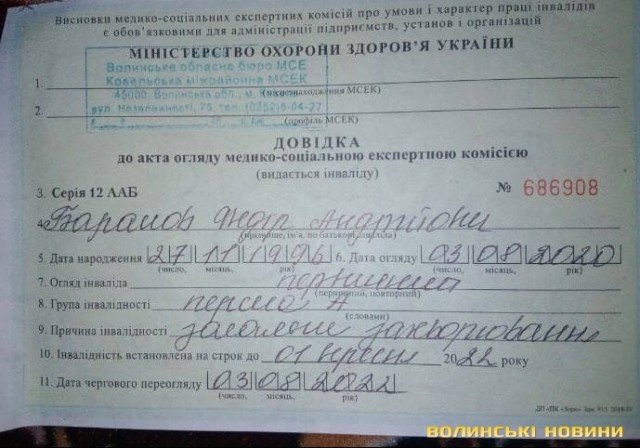 Висновки медико-соціальних експертних комісій про умови і характер праці інвалідів
є обов'язковими для адміністрації підприємств, установ і організацій
МІНІСТЕРСТВО ОХОРОНИ ЗДОРОВ'Я УКРАЇНИ
Волинське обласне бюро МСЕ
Ковельська міжрайонна МСЕК
1.
45000, Волинська обл., м.
(місцезнаходження МСЕК)
вул. Незалежності, 75, тел.
2.
(профіль МСЕК)
ДОВІДКА
до акта огляду медико-соціальною експертною комісією
(видається інваліду)
3. Серія 12 ААБ № 686908
4. Андрійович
(прізвище, ім'я, по батькові інваліда)
5. Дата народження 27 11 1996 6. Дата огляду 03 08 2020
(число, місяць, рік) (число, місяць, рік)
7. Огляд інваліда первинний
(первинний, повторний)
8. Група інвалідності перша А
(словами)
9. Причина інвалідності загальне захворювання
10. Інвалідність встановлена на строк до 01 вересня 2022 року
11. Дата чергового переогляду 03 08 2022
(число, місяць, рік)
ДП «ПК «Зоря».
ВОЛИНСЬКІ НОВИНИ